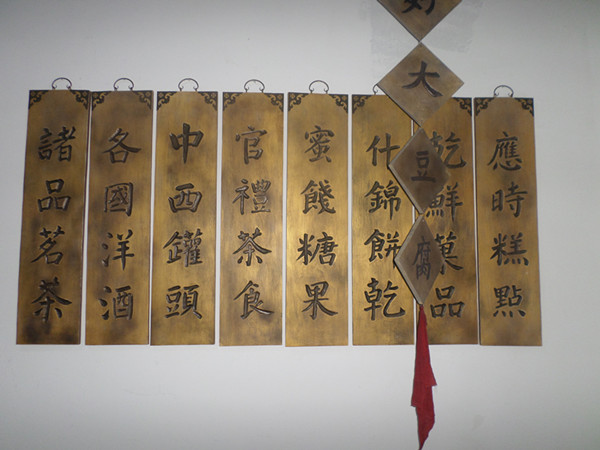 應時糕點
乾鮮菓品
好大豆腐
什錦餅乾
蜜餞糖果
官禮茶食
中西罐頭
各國洋酒
諸品茗茶